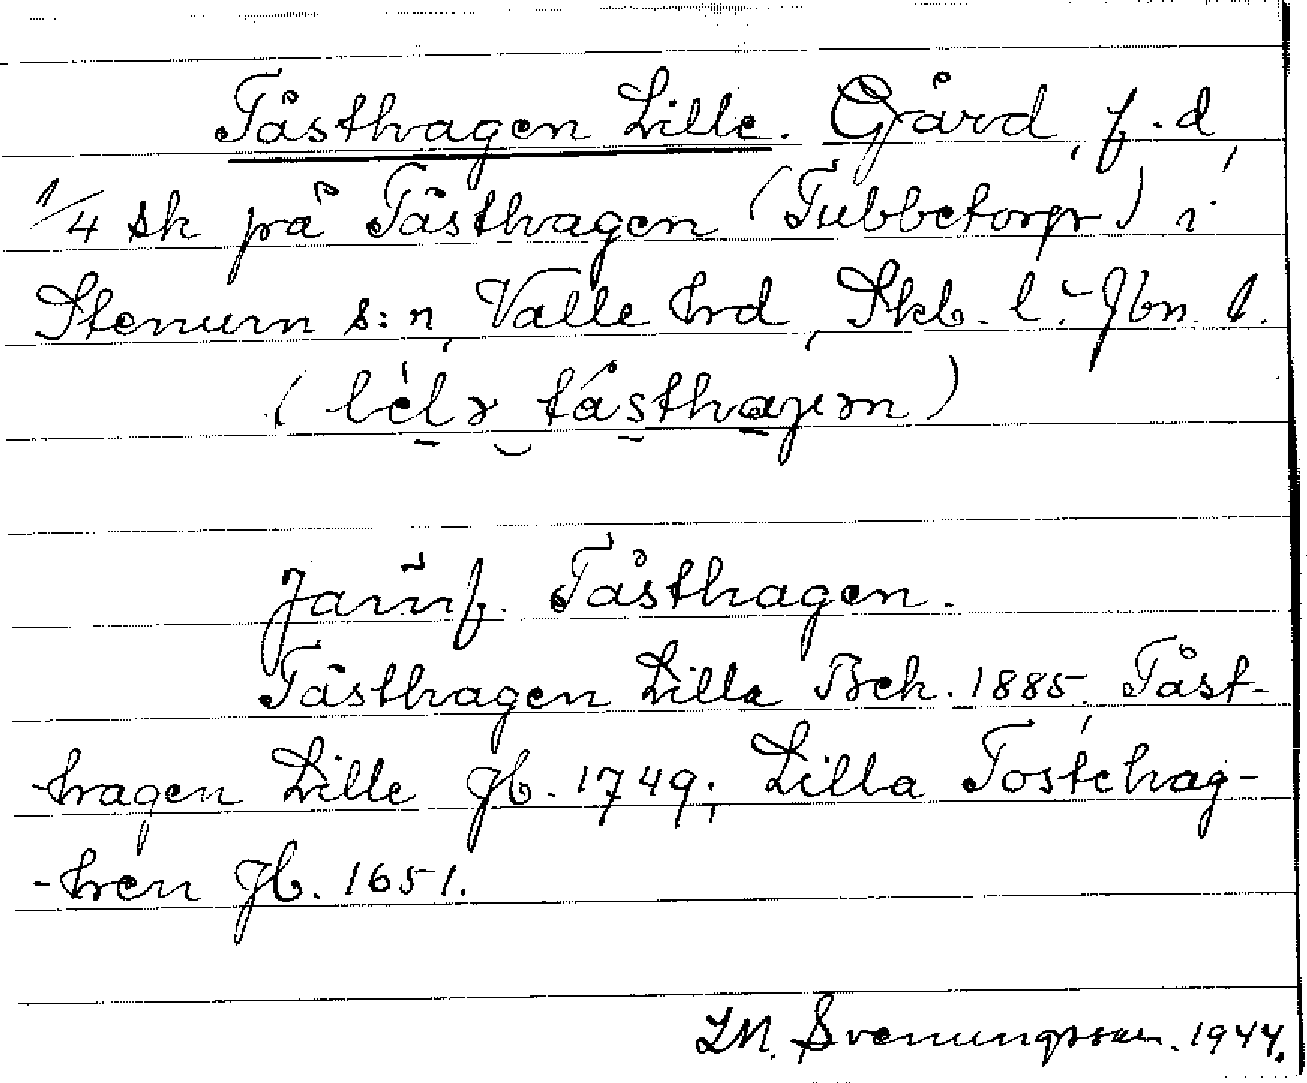 Tåsthagen Lille. Gård, f. d,
1/4 sk på Tåsthagen (Tubbetorp) i
Stenum s:n, Valle hrd, Skb. l. Jbn. 1.
(
Jämf. Tåsthagen.
Tåsthagen Lilla Bek. 1885, Tåst-
-hagen Lille Jb. 1749; Lilla Tostehag-
-hen Jb. 1651.
L.M. Svenungsson. 1944.